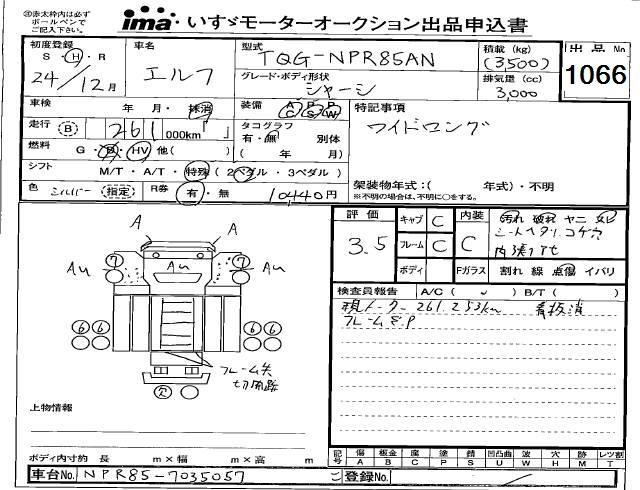 ※赤太枠内は必ず
ボールペンで
ご記入下さい。
ima いすゞモーターオークション出品申込書
初度登録 車名 型式 積載 (kg) 出品No
S・H・R エルフ TQG-NPR85AN (3500) 1066
24/12月 グレード・ボディ形状 排気量 (cc)
シャーシ 3,000
車検 年 月・抹消 装備 AC PS PW 特記事項
走行 (B) 261,000km タコグラフ ワイドロング
有・無 別体
燃料 G・B・HV 他( ) ( 年 月)
シフト M/T・A/T・特殊 (2ペダル・3ペダル)
架装物年式:( 年式)・不明
色 シルバー 指定 R券 有・無 10440円 ※不明の場合は、不明に○をする。
評価 キャブ C 内装 汚れ 破れ ヤニ
3.5 フレーム C C シートヘタリ コゲ穴
ボディ Fガラス 割れ 線 点傷 イバリ
検査員報告 A/C( ) B/T( )
現メーター261,253km 看板消
フレームサ.P
A A
7 7
Au Au Au
6 6 6 6
フレームサ
切開跡
欠
上物情報
ボディ内寸約 長 m×幅 m×高 m
記号 傷 板金 腐 塗 錆 凹凸曲 波 穴 跡 レツ割
A B C P S U W H M T
車台No. NPR85-7035057 ご登録No.